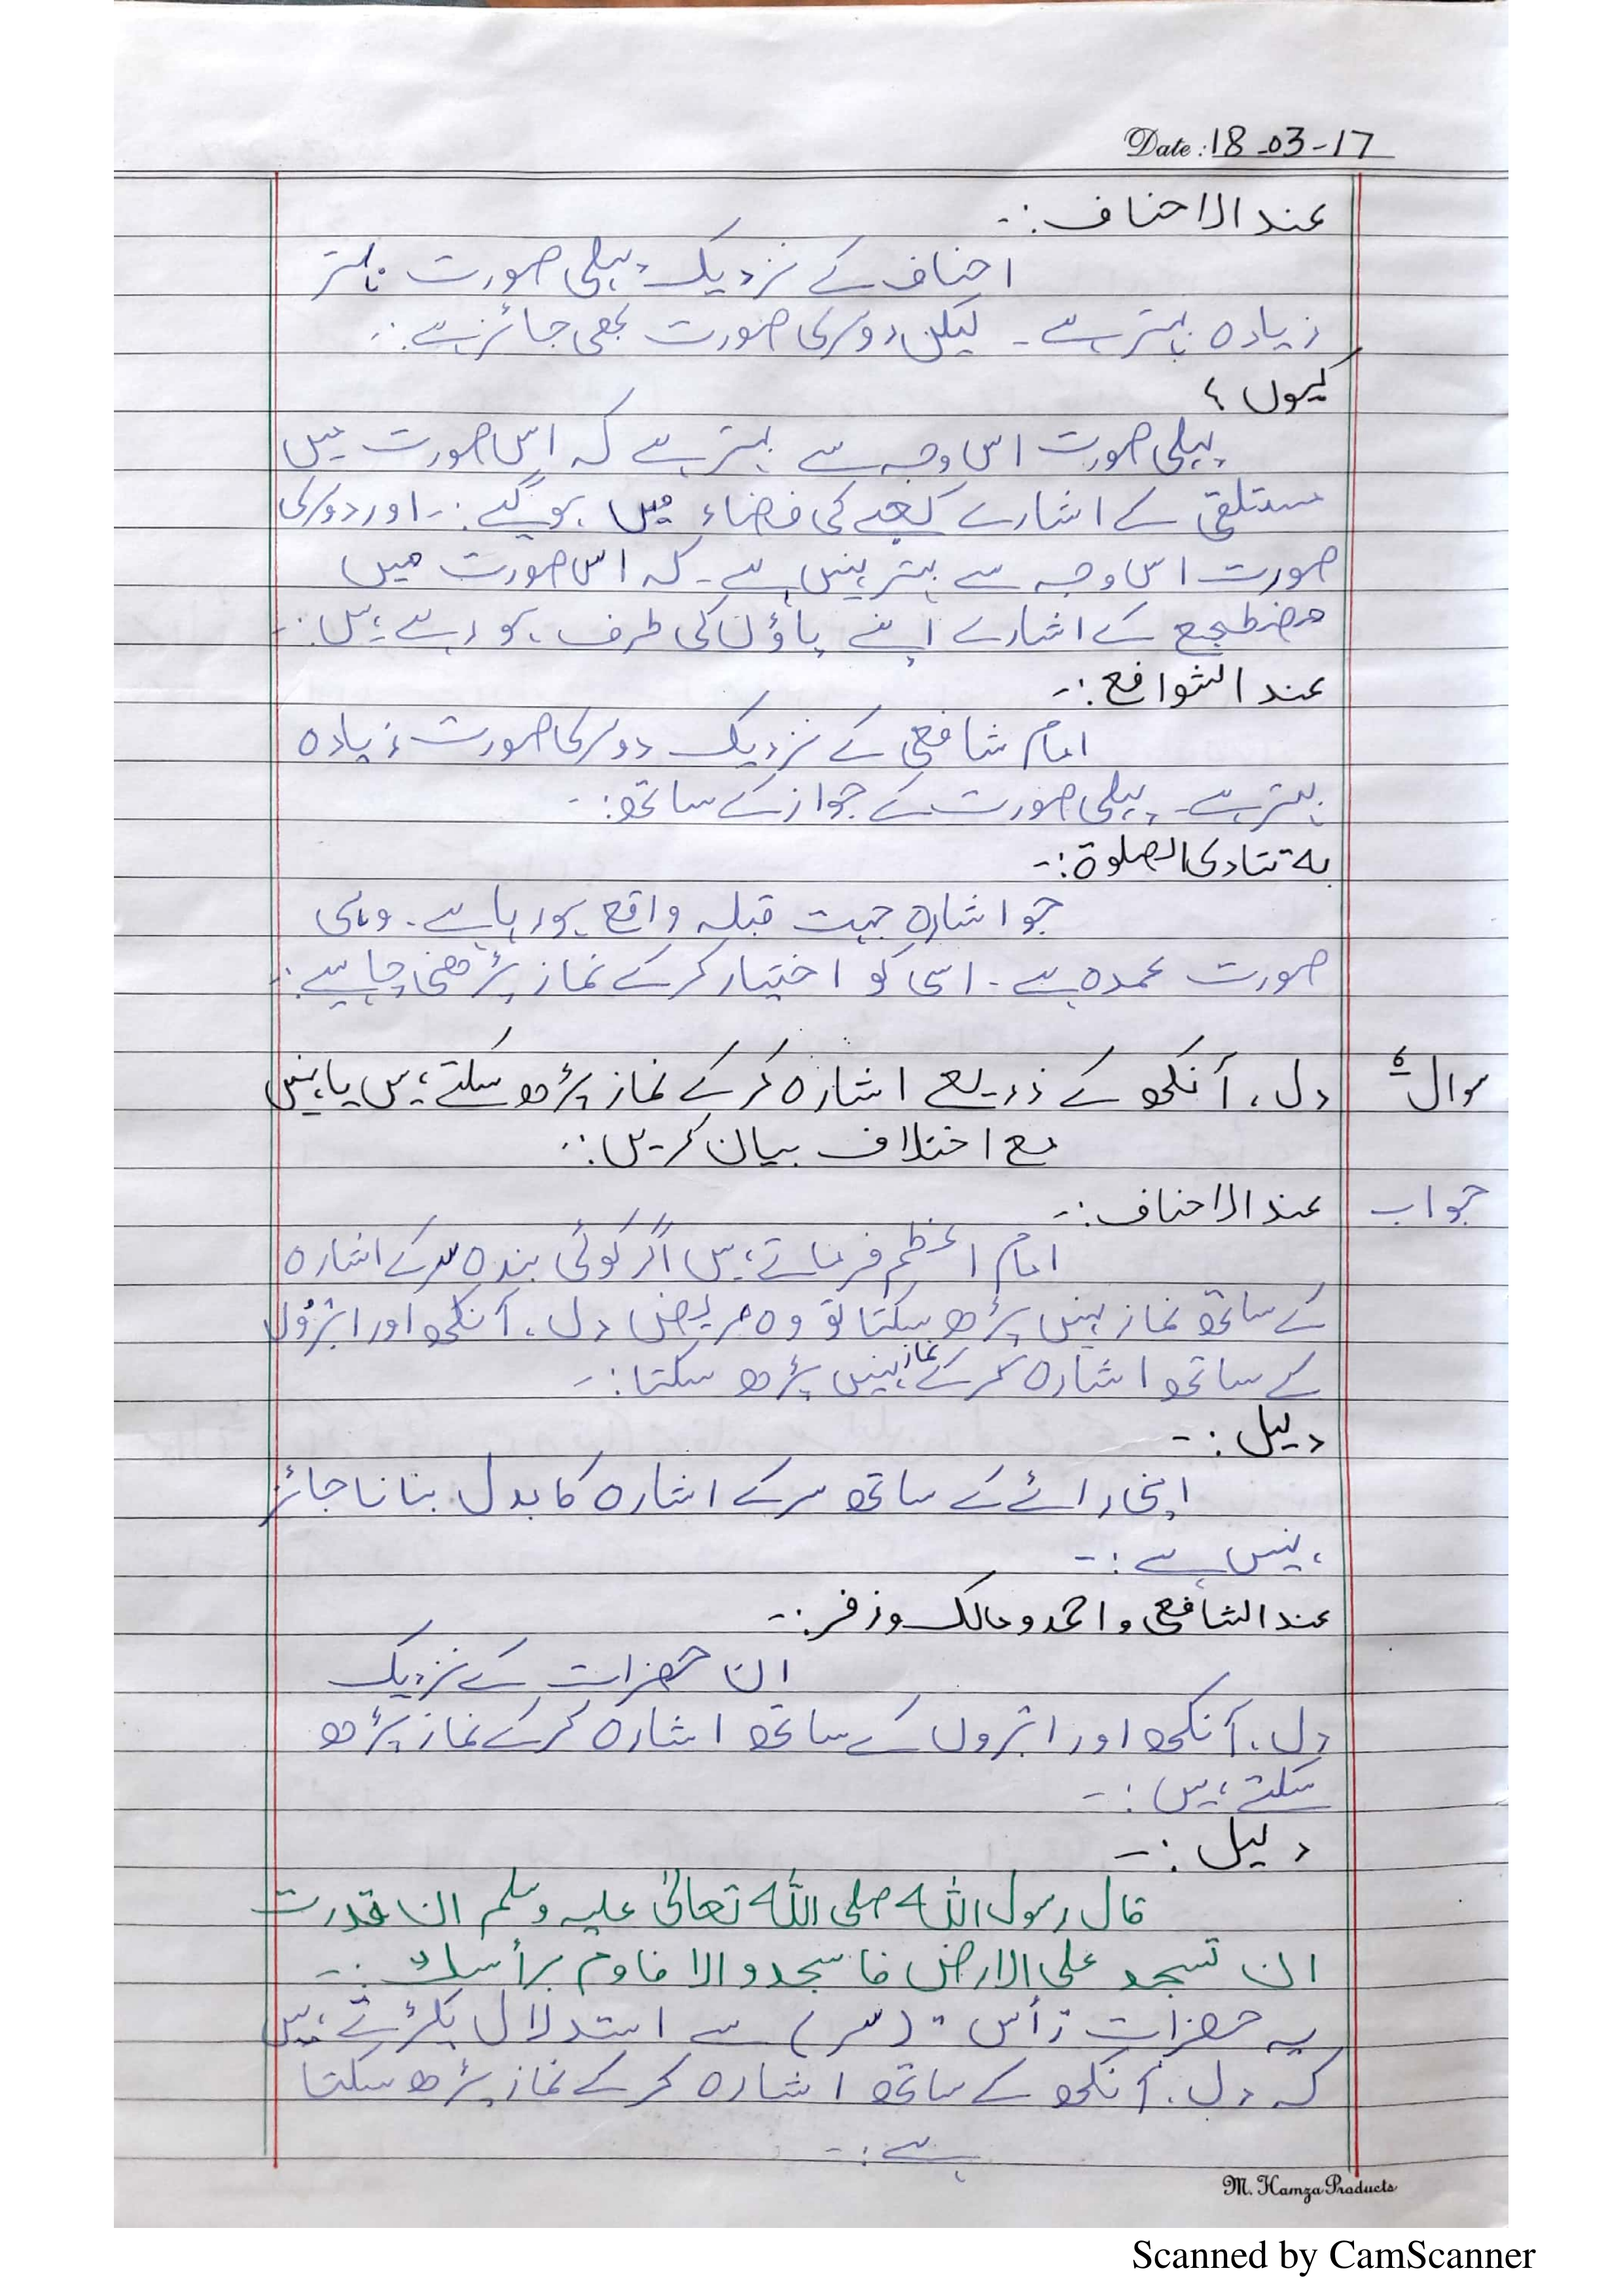 Date: 18-03-17
عند الاحناف :-
احناف کے نزدیک پہلی صورت بہتر
زیادہ بہتر ہے ۔ لیکن دوسری صورت بھی جائز ہے :-
کیوں ؟
پہلی صورت اس وجہ سے بہتر ہے کہ اس صورت میں
مستلقی کے اشارے کعبے کی فضاء میں ہونگے :- اور دوسری
صورت اس وجہ سے بہتر نہیں ہے ۔ کہ اس صورت میں
مضطجع کے اشارے اپنے پاؤں کی طرف ہو رہے ہیں :-
عند الشوافع :-
امام شافعی کے نزدیک دوسری صورت زیادہ
بہتر ہے ۔ پہلی صورت کے جواز کے ساتھ :-
به تتادی الصلوة :-
جو اشارہ جہت قبلہ واقع ہو رہا ہے ۔ وہی
صورت عمدہ ہے ۔ اسی کو اختیار کرکے نماز پڑھنی چاہیے :-
سوال ۵ دل ، آنکھ کے ذریعے اشارہ کرکے نماز پڑھ سکتے ہیں یا نہیں
مع اختلاف بیان کریں :-
جواب عند الاحناف :-
امام اعظم فرماتے ہیں اگر کوئی بندہ سر کے اشارہ
کے ساتھ نماز نہیں پڑھ سکتا تو وہ مریض دل ، آنکھ اور ابڑوُں
کے ساتھ اشارہ کرکے نماز نہیں پڑھ سکتا :-
دلیل :-
اپنی رائے کے ساتھ سر کے اشارہ کا بدل بنانا جائز
نہیں ہے :-
عند الشافعی و احمد و مالک و زفر :-
ان حضرات کے نزدیک
دل ، آنکھ اور ابڑوں کے ساتھ اشارہ کرکے نماز پڑھ
سکتے ہیں :-
دلیل :-
قال رسول الله صلی الله تعالیٰ علیہ وسلم ان قدرت
ان تسجد علی الارض فاسجد و الا فاوم برأسك :-
یہ حضرات رأس " (سر) سے استدلال پکڑتے ہیں
کہ دل ، آنکھ کے ساتھ اشارہ کرکے نماز پڑھ سکتا
ہے :-
M. Hamza Products
Scanned by CamScanner